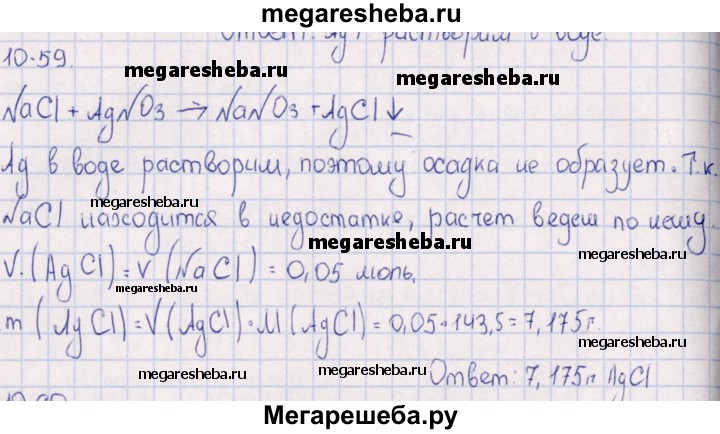 megaresheba.ru
Ответ: AgF растворим в воде.
10.59.
megaresheba.ru
megaresheba.ru
NaCl + AgNO3 → NaNO3 + AgCl↓
Ag в воде растворим, поэтому осадка не образует. Т.к.
megaresheba.ru
NaCl находится в недостатке, расчет ведем по нему.
megaresheba.ru
megaresheba.ru
V.(AgCl) = V(NaCl) = 0,05 моль.
megaresheba.ru
m(AgCl) = V(AgCl)·M(AgCl) = 0,05·143,5 = 7,175г.
megaresheba.ru
megaresheba.ru
Ответ: 7,175г AgCl
Мегарешеба.ру